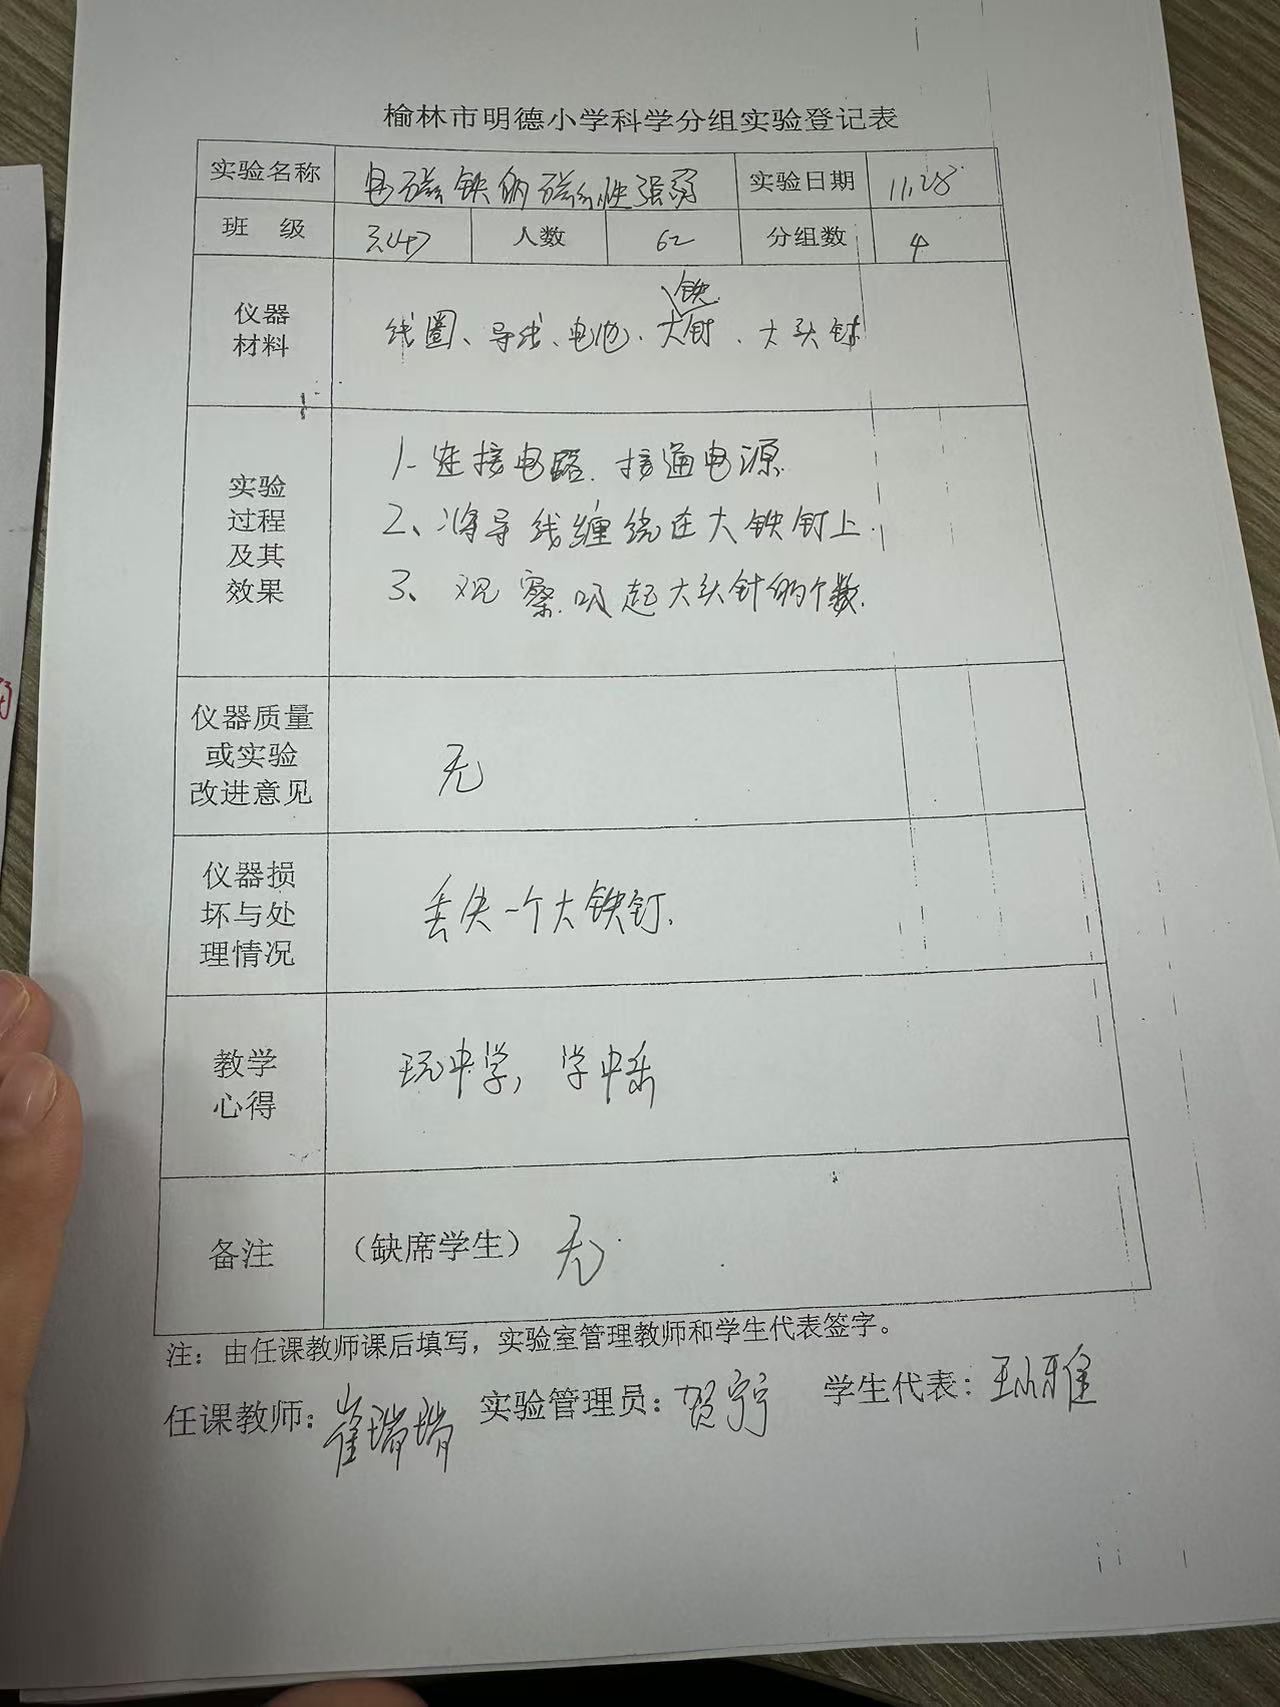 榆林市明德小学科学分组实验登记表
实验名称 电磁铁的磁性强弱 实验日期 11.28
班 级 人数 62 分组数 4
仪器材料 线圈、导线、电池、大铁钉、大头针
实验过程及其效果
1、连接电路、接通电源
2、将导线缠绕在大铁钉上.
3、观察吸起大头针的个数.
仪器质量或实验改进意见 无
仪器损坏与处理情况 丢失一个大铁钉.
教学心得 玩中学，学中乐
备注 （缺席学生） 无
注：由任课教师课后填写，实验室管理教师和学生代表签字。
任课教师：崔瑞瑞 实验管理员：贺宁宁 学生代表：